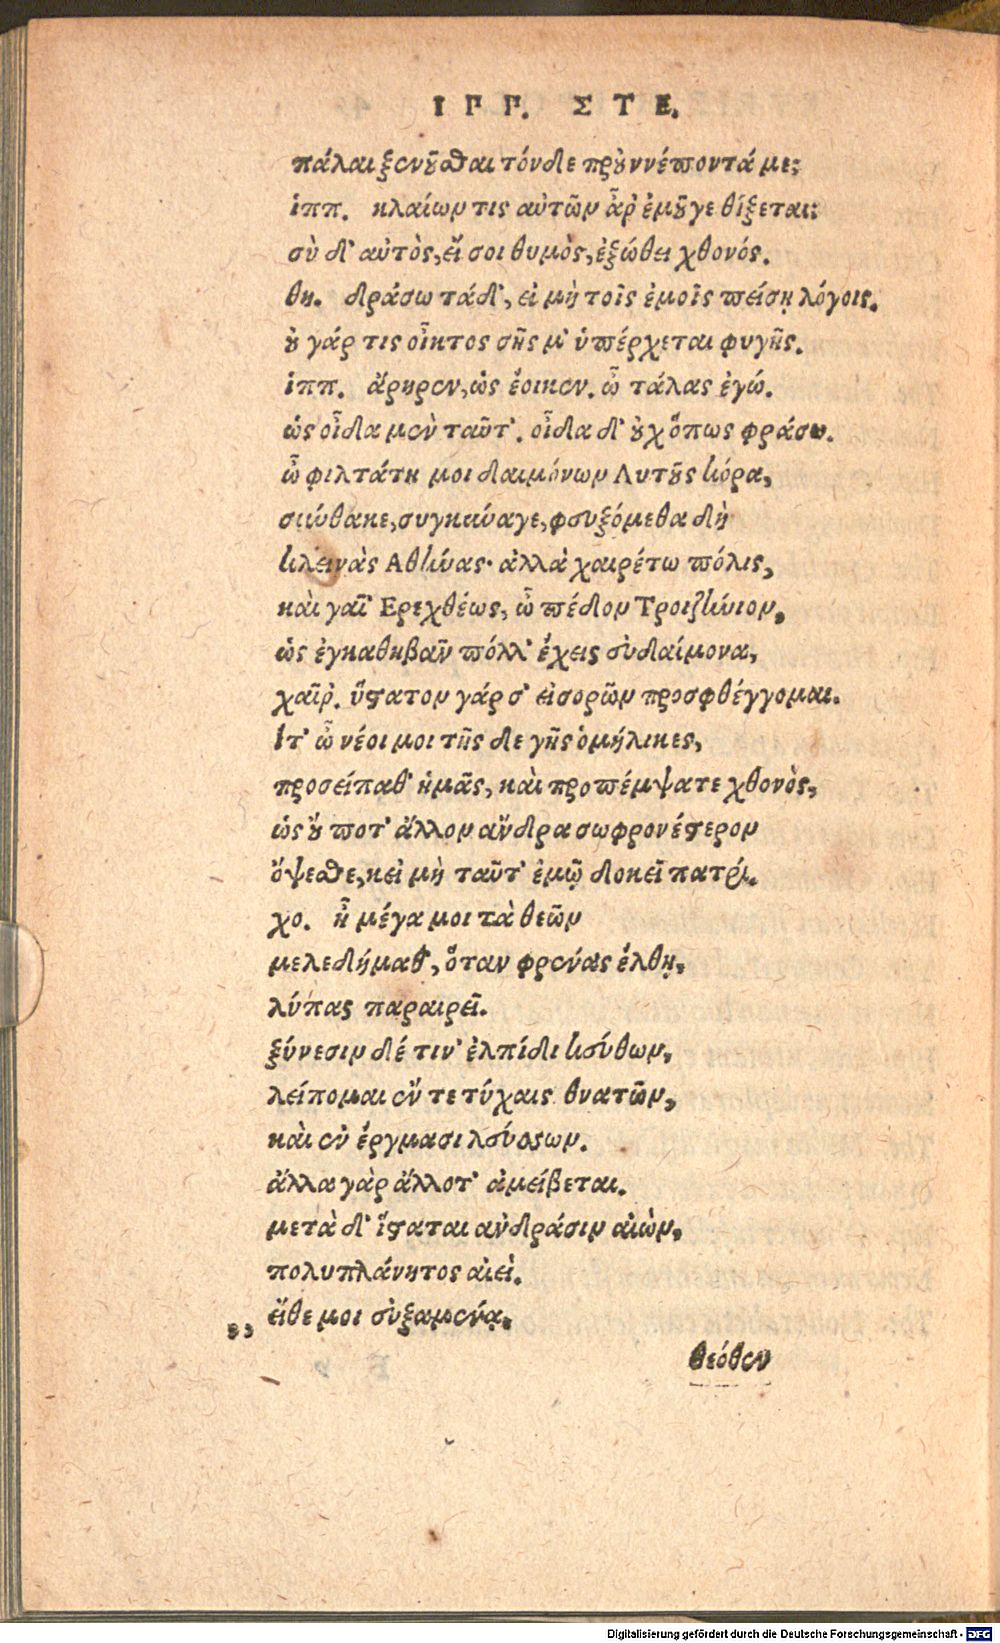 ΙΠΠ. ΣΤΕ.
πάλαι ξενοῦσθαι τόνδε προὐννέποντά με;
ἱππ. κλαίων τις αὐτῶν ἆρ' ἐμοῦγε θίξεται;
σὺ δ' αὐτὸς, εἴ σοι θυμὸς, ἐξώθει χθονός.
θη. δράσω τάδ', εἰ μὴ τοῖς ἐμοῖς πείσῃ λόγοις.
οὐ γάρ τις οἶκτος σῆς μ' ὑπέρχεται φυγῆς.
ἱππ. ἄρηρεν, ὡς ἔοικεν. ὦ τάλας ἐγώ.
ὡς οἶδα μὲν ταῦτ'. οἶδα δ' οὐχ ὅπως φράσω.
ὦ φιλτάτη μοι δαιμόνων Λητοῦς κόρα,
σύνθακε, συγκύναγε, φευξόμεθα δὴ
κλεινὰς Αθήνας· ἀλλὰ χαιρέτω πόλις,
καὶ γαῖ' Ερεχθέως, ὦ πέδον Τροιζήνιον,
ὡς ἐγκαθηβᾶν πόλλ' ἔχεις εὐδαίμονα,
χαῖρ'. ὕστατον γάρ σ' εἰσορῶν προσφθέγγομαι.
Ιτ' ὦ νέοι μοι τῆς δε γῆς ὁμήλικες,
προσείπαθ' ἡμᾶς, καὶ προπέμψατε χθονὸς,
ὡς οὔ ποτ' ἄλλον ἄνδρα σωφρονέστερον
ὄψεσθε, κεἰ μὴ ταῦτ' ἐμῷ δοκεῖ πατρί.
χο. ἦ μέγα μοι τὰ θεῶν
μελεδήμαθ', ὅταν φρένας ἔλθῃ,
λύπας παραιρεῖ.
ξύνεσιν δέ τιν' ἐλπίδι κεύθων,
λείπομαι ἔν τε τύχαις θνατῶν,
καὶ ἐν ἔργμασι λεύσσων.
ἄλλα γὰρ ἄλλοτ' ἀμείβεται.
μετὰ δ' ἵσταται ἀνδράσιν αἰὼν,
πολυπλάνητος αἰεὶ.
εἴθε μοι εὐξαμένᾳ,
θεόθεν
Digitalisierung gefördert durch die Deutsche Forschungsgemeinschaft - DFG